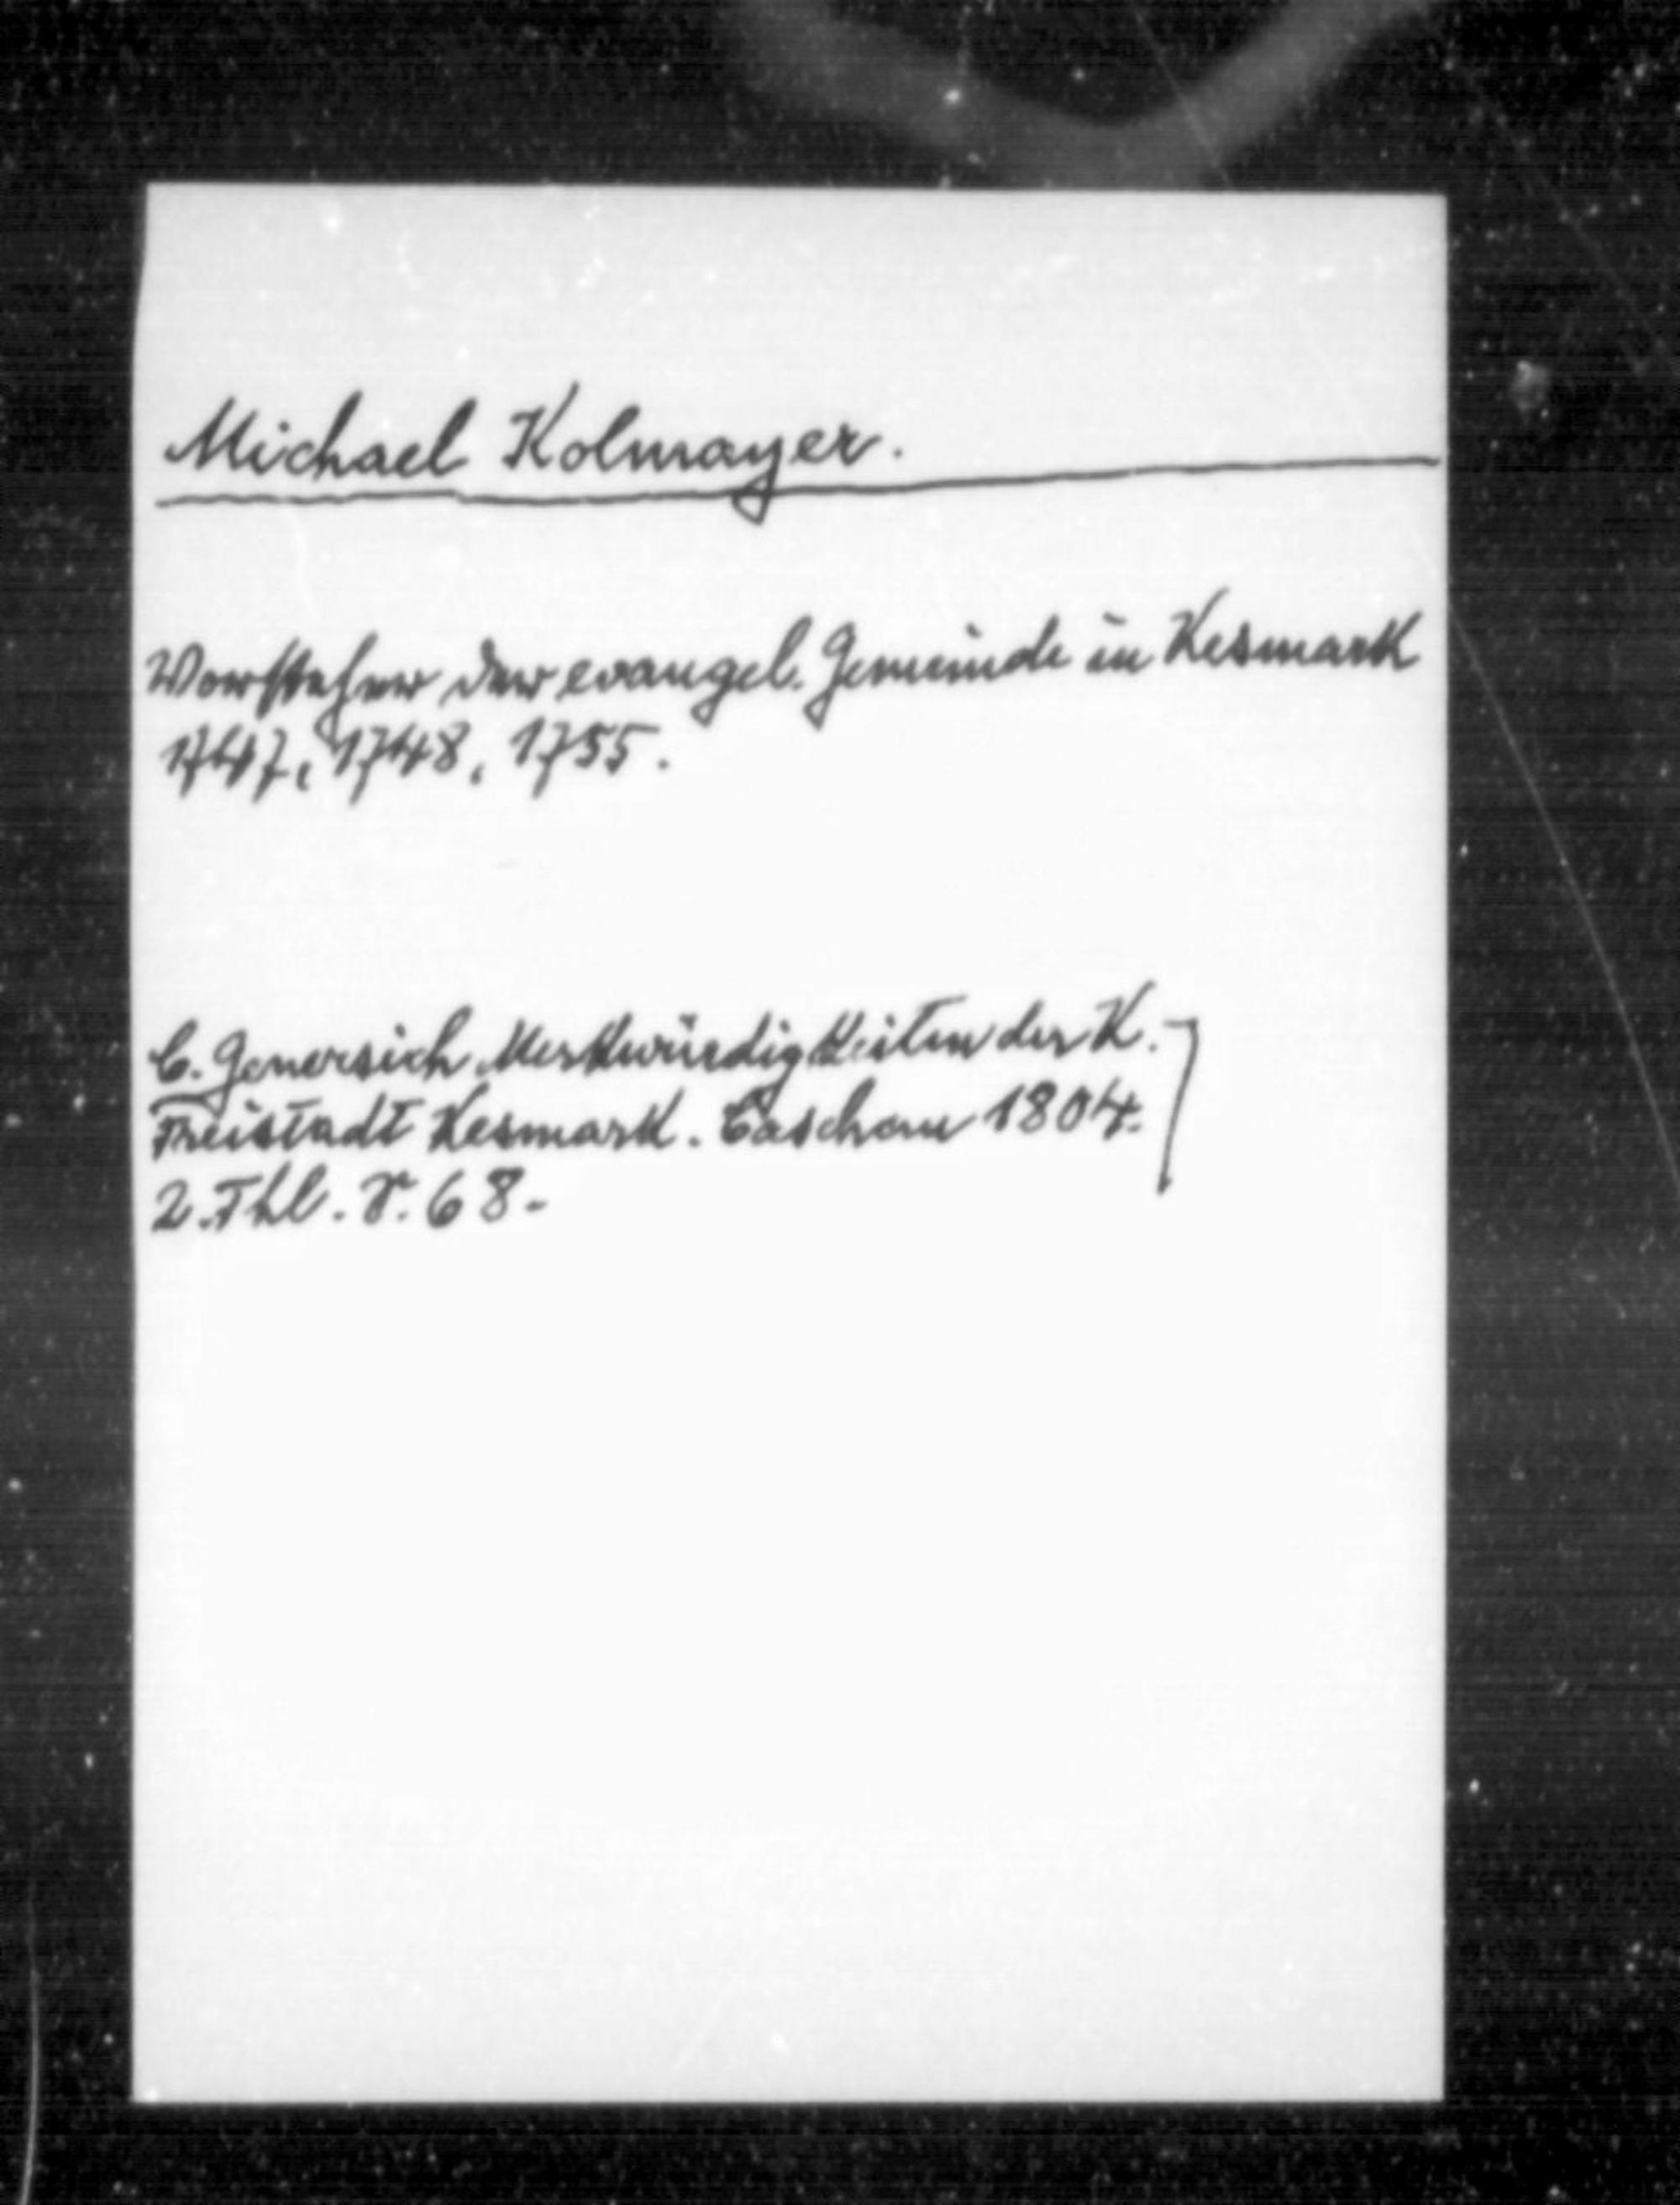 Michael Kolmayer.
Vorsteher der evangel. Gemeinde in Kesmark
1747, 1748, 1755.
C. Genersich Merkwürdigkeiten der K.
Freistadt Kesmark. Caschau 1804.
2. Thl. S. 68.